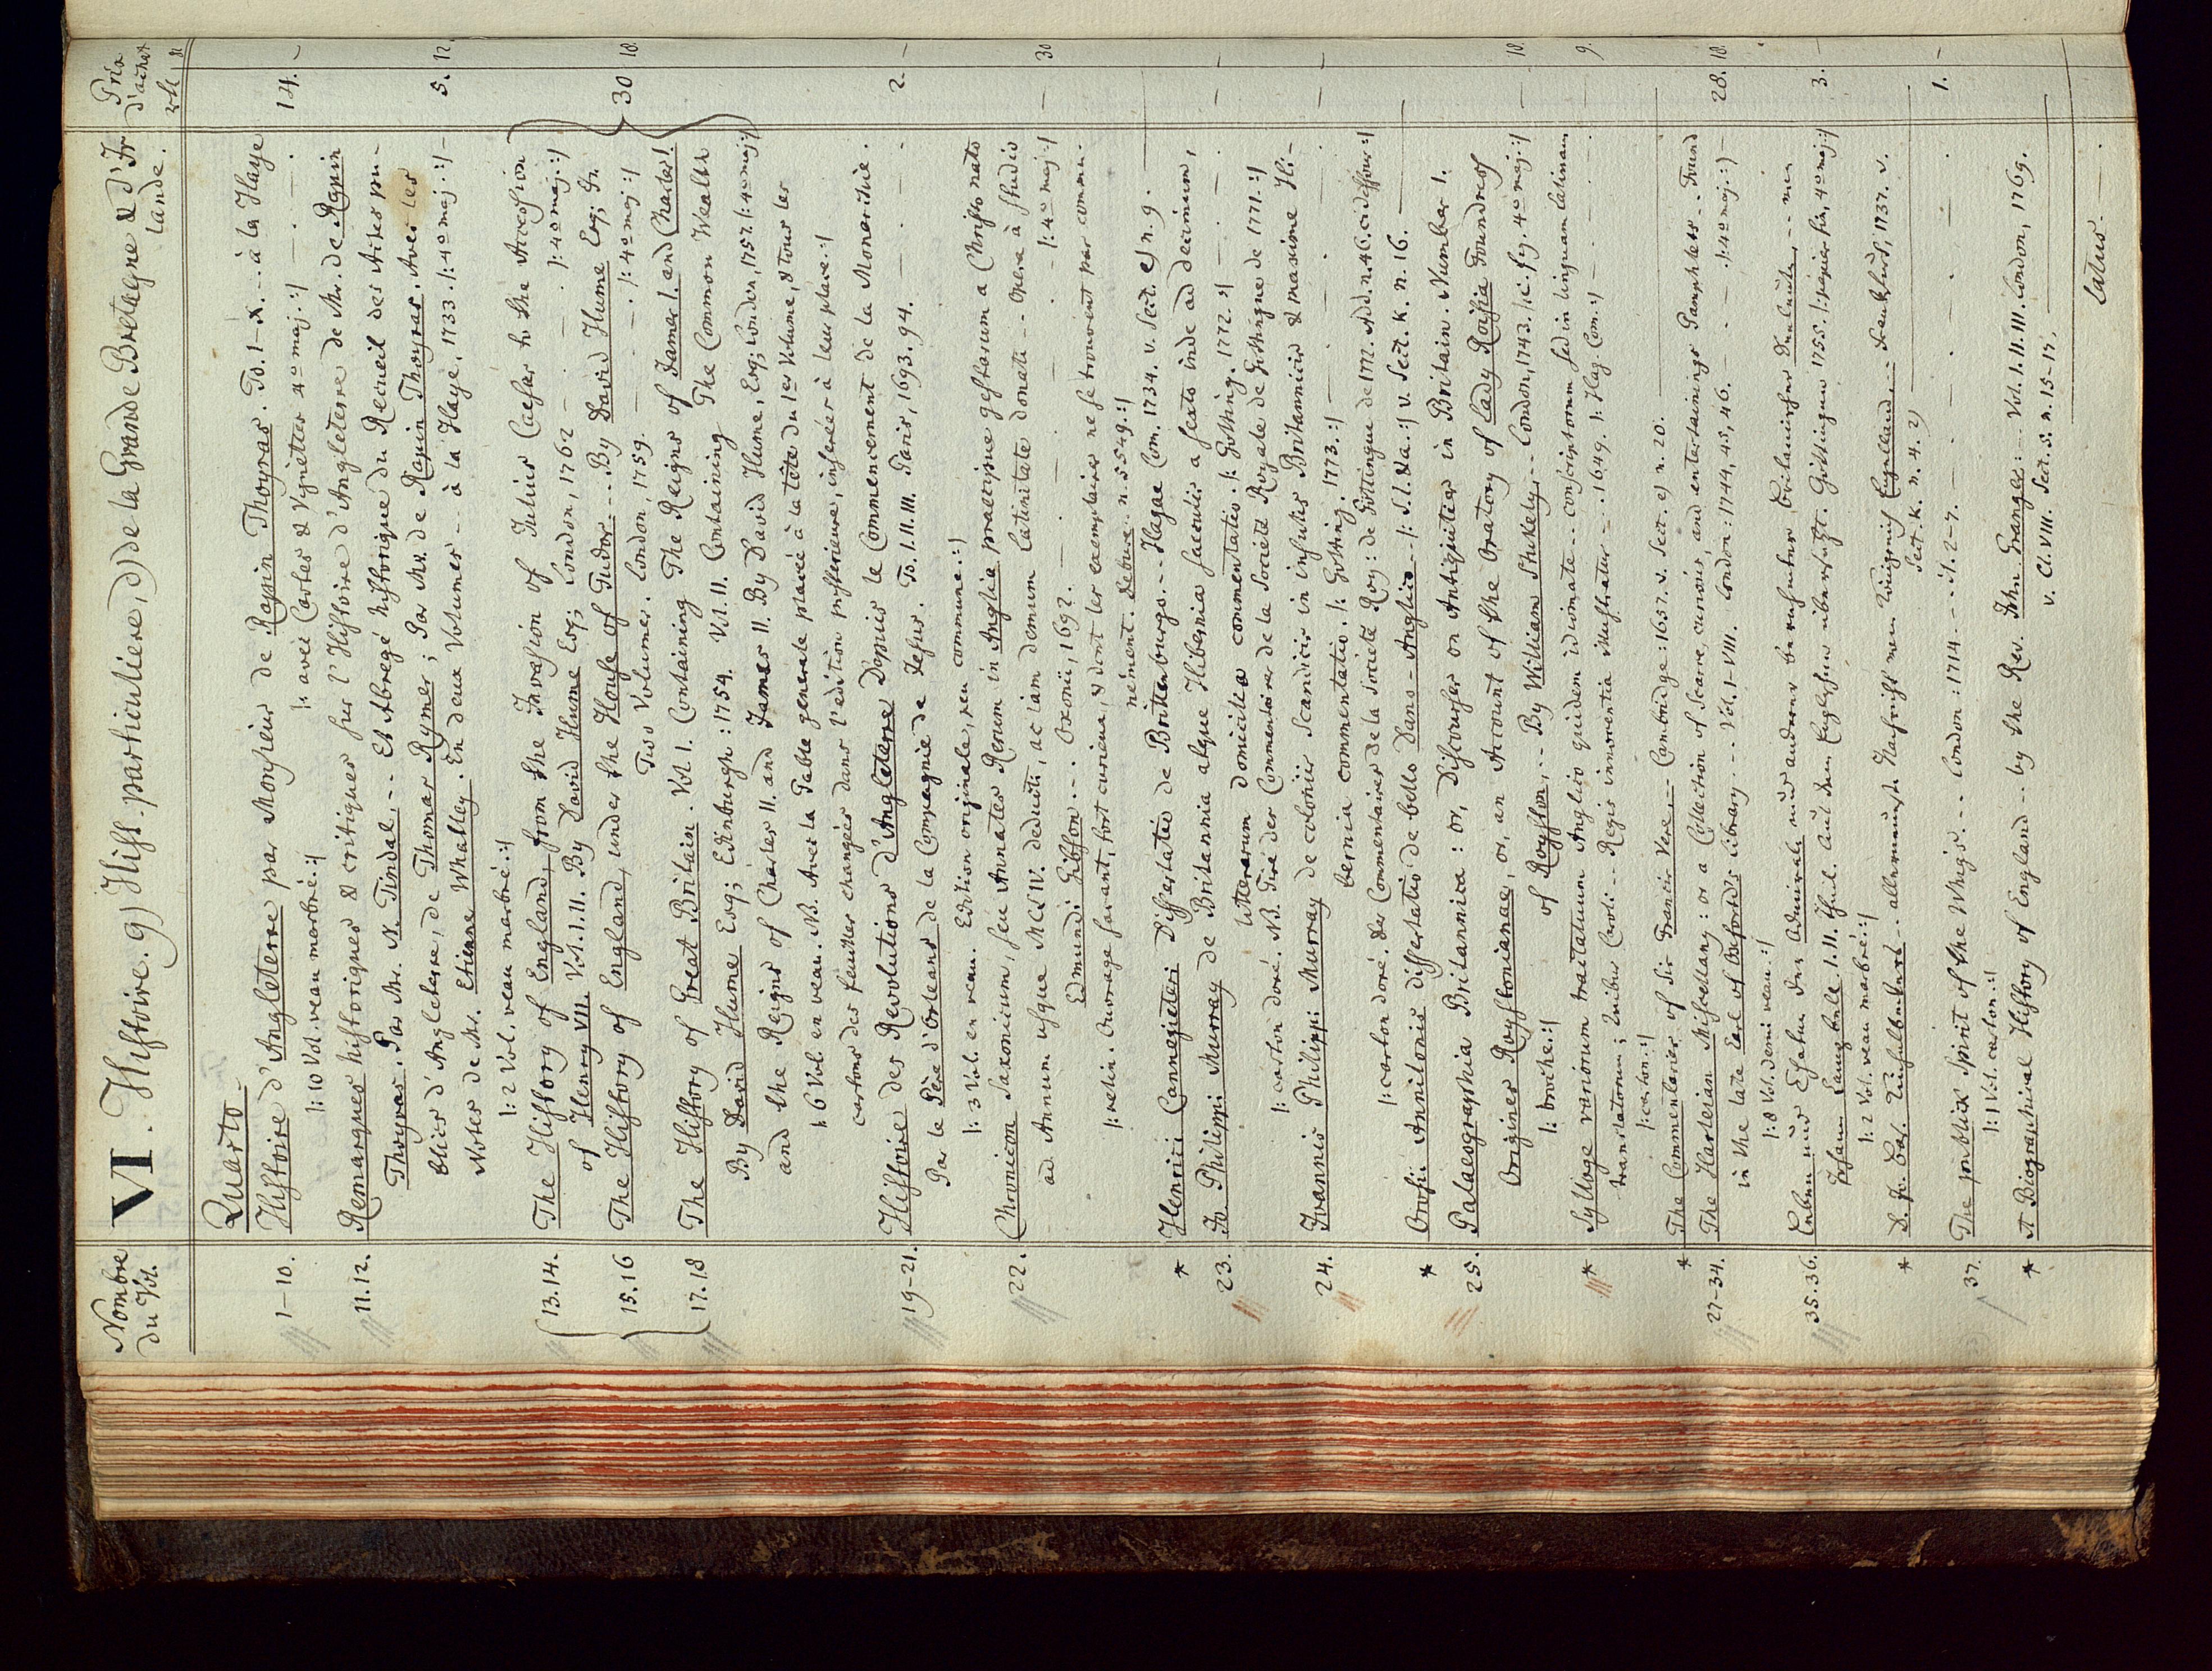 Nombre du Vol.
VI. Histoire. g) Hist. particuliere, d) de la Grande Bretagne & d'Irlande.
Prix d'achat
Quarto.
1-10. Histoire d'Angleterre par Monsieur de Rapin Thoyras. To. I-X. - - à la Haye 14. -
|: 10 Vol. veau marbré. :| |: avec Cartes & Vignettes 4º maj. :|
11. 12. Remarques historiques & critiques sur l'Histoire d'Angleterre de Mr. de Rapin
Thoyras. Par Mr. N. Tindal, - - Et Abregé historique du Recueil des Actes pu-
blics d'Angleterre, de Thomas Rymer; Par Mr. de Rapin Thoyras. Avec les
Notes de Mr. Etienne Whatley. En deux Volumes - - à la Haye. 1733. |: 4º maj. :| 5. 12.
|: 2 Vol. veau marbré. :|
13. 14. The History of England, from the Invasion of Julius Caesar to the Accession
of Henry VII. Vol. I. II. By David Hume Esq; London, 1762 |: 4º maj. :|
15. 16 The History of England, under the House of Tudor - - By David Hume Esq; In
Two Volumes. London, 1759. |: 4º maj. :| 30 18.
17. 18 The History of Great Britain. Vol. I. Containing The Reigns of James I. and Charles I.
By David Hume Esq; Edinburgh: 1754. Vol. II. Containing The Common Wealth
and the Reigns of Charles II. and James II. By David Hume, Esq; London, 1757. |: 4º maj. :|
|: 6 Vol. en veau. NB. Avec la Table generale placée à la tête du 1er Volume, & tous les
cartons des feuilles changées dans l'edition posterieure, inserées à leur place. :|
19-21. Histoire des Revolutions d'Angleterre Depuis le Commencement de la Monarchie.
Par le Père d'Orleans de la Compagnie de Jesus. To. I. II. III. Paris, 1693. 94. 2. -
|: 3 Vol. en veau. Edition originale, peu commune. :|
22. Chronicon Saxonicum, seu Annales Rerum in Anglia praecipue gestarum a Christo nato
ad Annum usque MCLIV. deducti, ac iam demum Latinitate donati - - opera & studio
Edmundi Gibson - - . Oxonii, 1692. |: 4º maj. :| - 30
|: velin. Ouvrage savant, fort curieux, & dont les exemplaires ne se trouvent pas commu-
nément. Debure n. 5549. :|
* Henrici Cannegieteri Dissertatio de Brittenburgo - - Hagae Com. 1734. v. Sect. e) n. 9.
23. Jo. Philippi Murray de Britannia atque Hibernia saeculis a sexto inde ad decimum,
literarum domicilio commentatio. |: Gotting. 1772. :| - -
|: carton doré. NB. Tiré des Commentaires de la Societé Royale de Gottingue de 1771. :|
24. Joannis Philippi Murray de coloniis Scandicis in insulis Britannicis & maxime Hi-
bernia commentatio. |: Gotting. 1773. :| - -
|: carton doré. des Commentaires de la Societé Roy: de Gottingue de 1772. Add. n. 46. cidessous :|
* Orosii Annitonis dissertatio de bello Dano-Anglico - - |: S. l. & a. :| v. Sect. K. n. 16.
25. Palaeographia Britannica: or, Discourses on Antiquities in Britain. Number I.
Origines Roystonianae, or, an Account of the Oratory of Lady Roisia Foundress
of Royston, - - By William Stukely. - London, 1743. |: c. fig. 4º maj. :| - 18.
|: broché. :|
* Sylloge variorum tractatuum Anglico quidem idiomate - - conscriptorum sed in linguam latinam
translatorum; Quibus Caroli - - Regis innocentia illustratur - - . 1649. |: Hag. Com. :| - 9.
|: carton. :|
* The Commentaries of Sir Francis Vere, - - Cambridge: 1657. v. Sect. e) n. 20.
27-34. The Harleian Miscellany: or a Collection of Scarce, curious, and entertainings Pamphlets - - Found
in the late Earl of Oxford's library - - . Vol. I-VIII. London: 1744, 45, 46. |: 4º maj. :| 28. 18.
|: 8 Vol. demi veau. :|
35. 36. Leben und Thaten der Admirale und anderer beruhmter Britannischer Seeleute - - von
Johann Campbele. I. II. Theil. Aus dem Englischen übersetzt. Göttingen 1755. |: papier fin, 4º maj. :| 3. -
|: 2 Vol. veau marbré. :|
* - - allerneueste Nachricht vom Königreich Engelland - - Frankfurt, 1737. v.
Sect. K. n. 4. 2)
37. The publick Spirit of the Whigs - - London: 1714 - - 1. -
|: 1 Vol. carton. :|
* A Biographical History of England - - by the Rev. John Granger - - Vol. I. II. III. London, 1769.
v. Cl. VIII. Sect. d. n. 15-17.
Latus